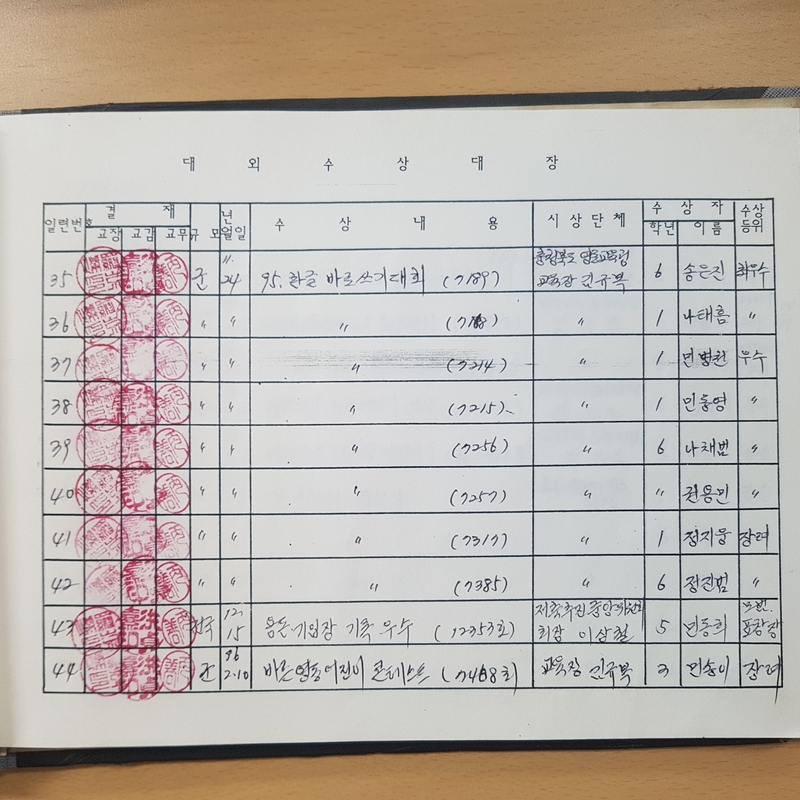 대 외 수 상 대 장
일련번호 결 재 규모 년월일 수 상 내 용 시상단체 수상자 수상등위
교장 교감 교무 학년 이름
35 군 11. 24 95. 한글 바로쓰기대회 (7189) 충청북도 영동교육청 교육장 김규복 6 송은진 최우수
36 〃 〃 〃 〃 1 나태흠 〃
37 〃 〃 〃 (7214) 〃 1 민병권 우수
38 〃 〃 〃 (7215) 〃 1 민동영 〃
39 〃 〃 〃 (7256) 〃 6 나채범 〃
40 〃 〃 〃 (7257) 〃 〃 권용민 〃
41 〃 〃 〃 (7317) 〃 1 정지웅 장려
42 〃 〃 〃 (7385) 〃 6 정진범 〃
43 전국 12. 15 용돈기입장 기록 우수 (12353호) 저축추진중앙위원회 회장 이상철 5 민동희 모범 표창장
44 군 96 2.10 바른영동어린이 콘테스트 (7468호) 교육장 김규복 3 민송이 장려